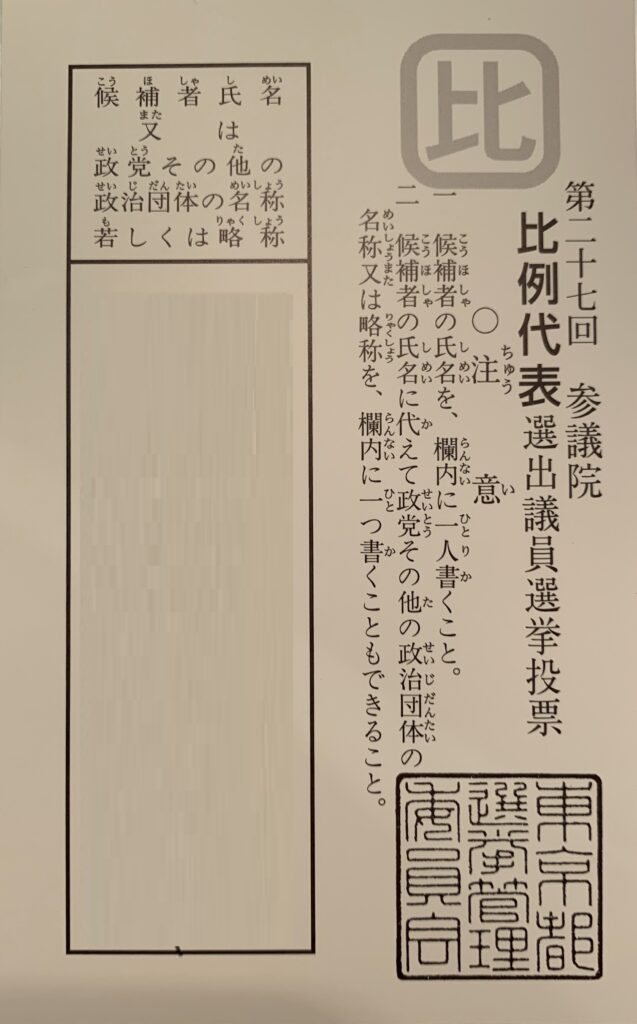 比
第二十七回　参議院
比例代表選出議員選挙投票
〇注意
一　候補者の氏名を、欄内に一人書くこと。
二　候補者の氏名に代えて政党その他の政治団体の
名称又は略称を、欄内に一つ書くこともできること。
東京都
選挙管理
委員会印
候補者氏名
又は
政党その他の
政治団体の名称
若しくは略称